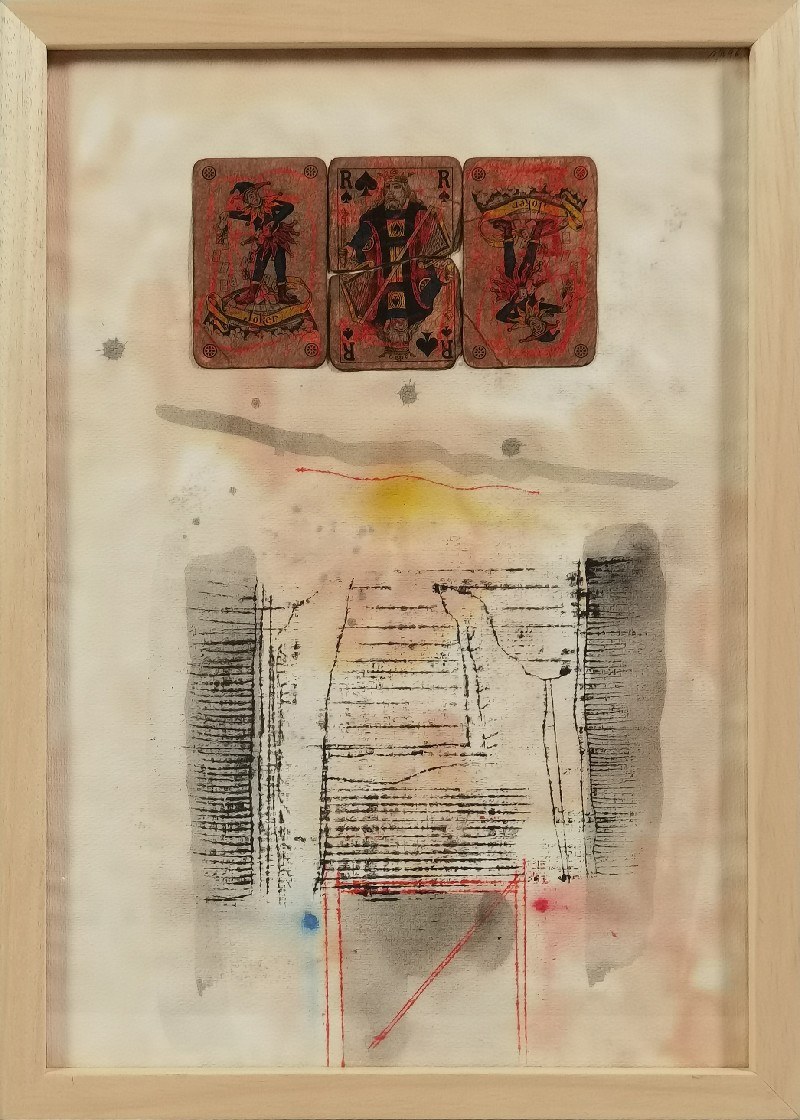 R R
Joker
Joker
R R